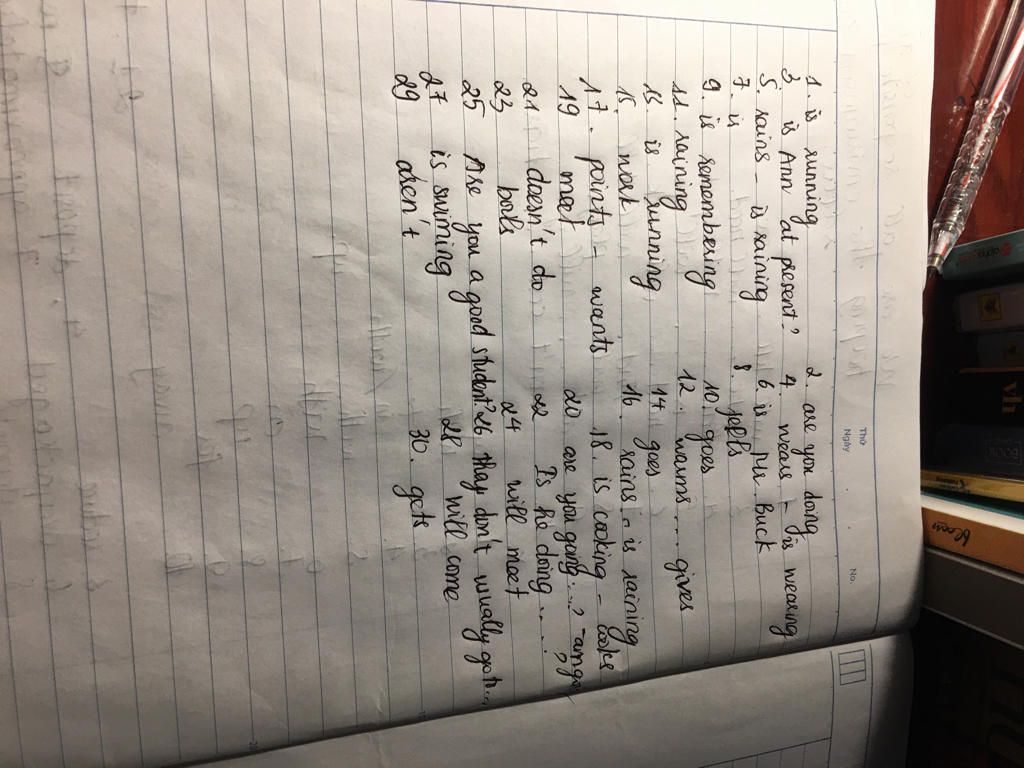 Thứ
Ngày
No.
1. is running 2. are you doing
3 is Ann at present? 4. wears - is wearing
5, rains - is raining 6 is Mr. Buck
7. is 8.
9. is remembering 10. goes
11. raining 12. warms.... gives
13 is running 14 goes
15 work 16. rains - is raining
17. points - wants 18. is cooking - cooks
19 meet 20 are you going...?
21 doesn't do 22 Is he doing ....?
23 boils 24 will meet
25 Are you a good student? 26 they don't usually go to...
27 is swiming 28 will come
29 aren't 30. gets
alpha
BOOK